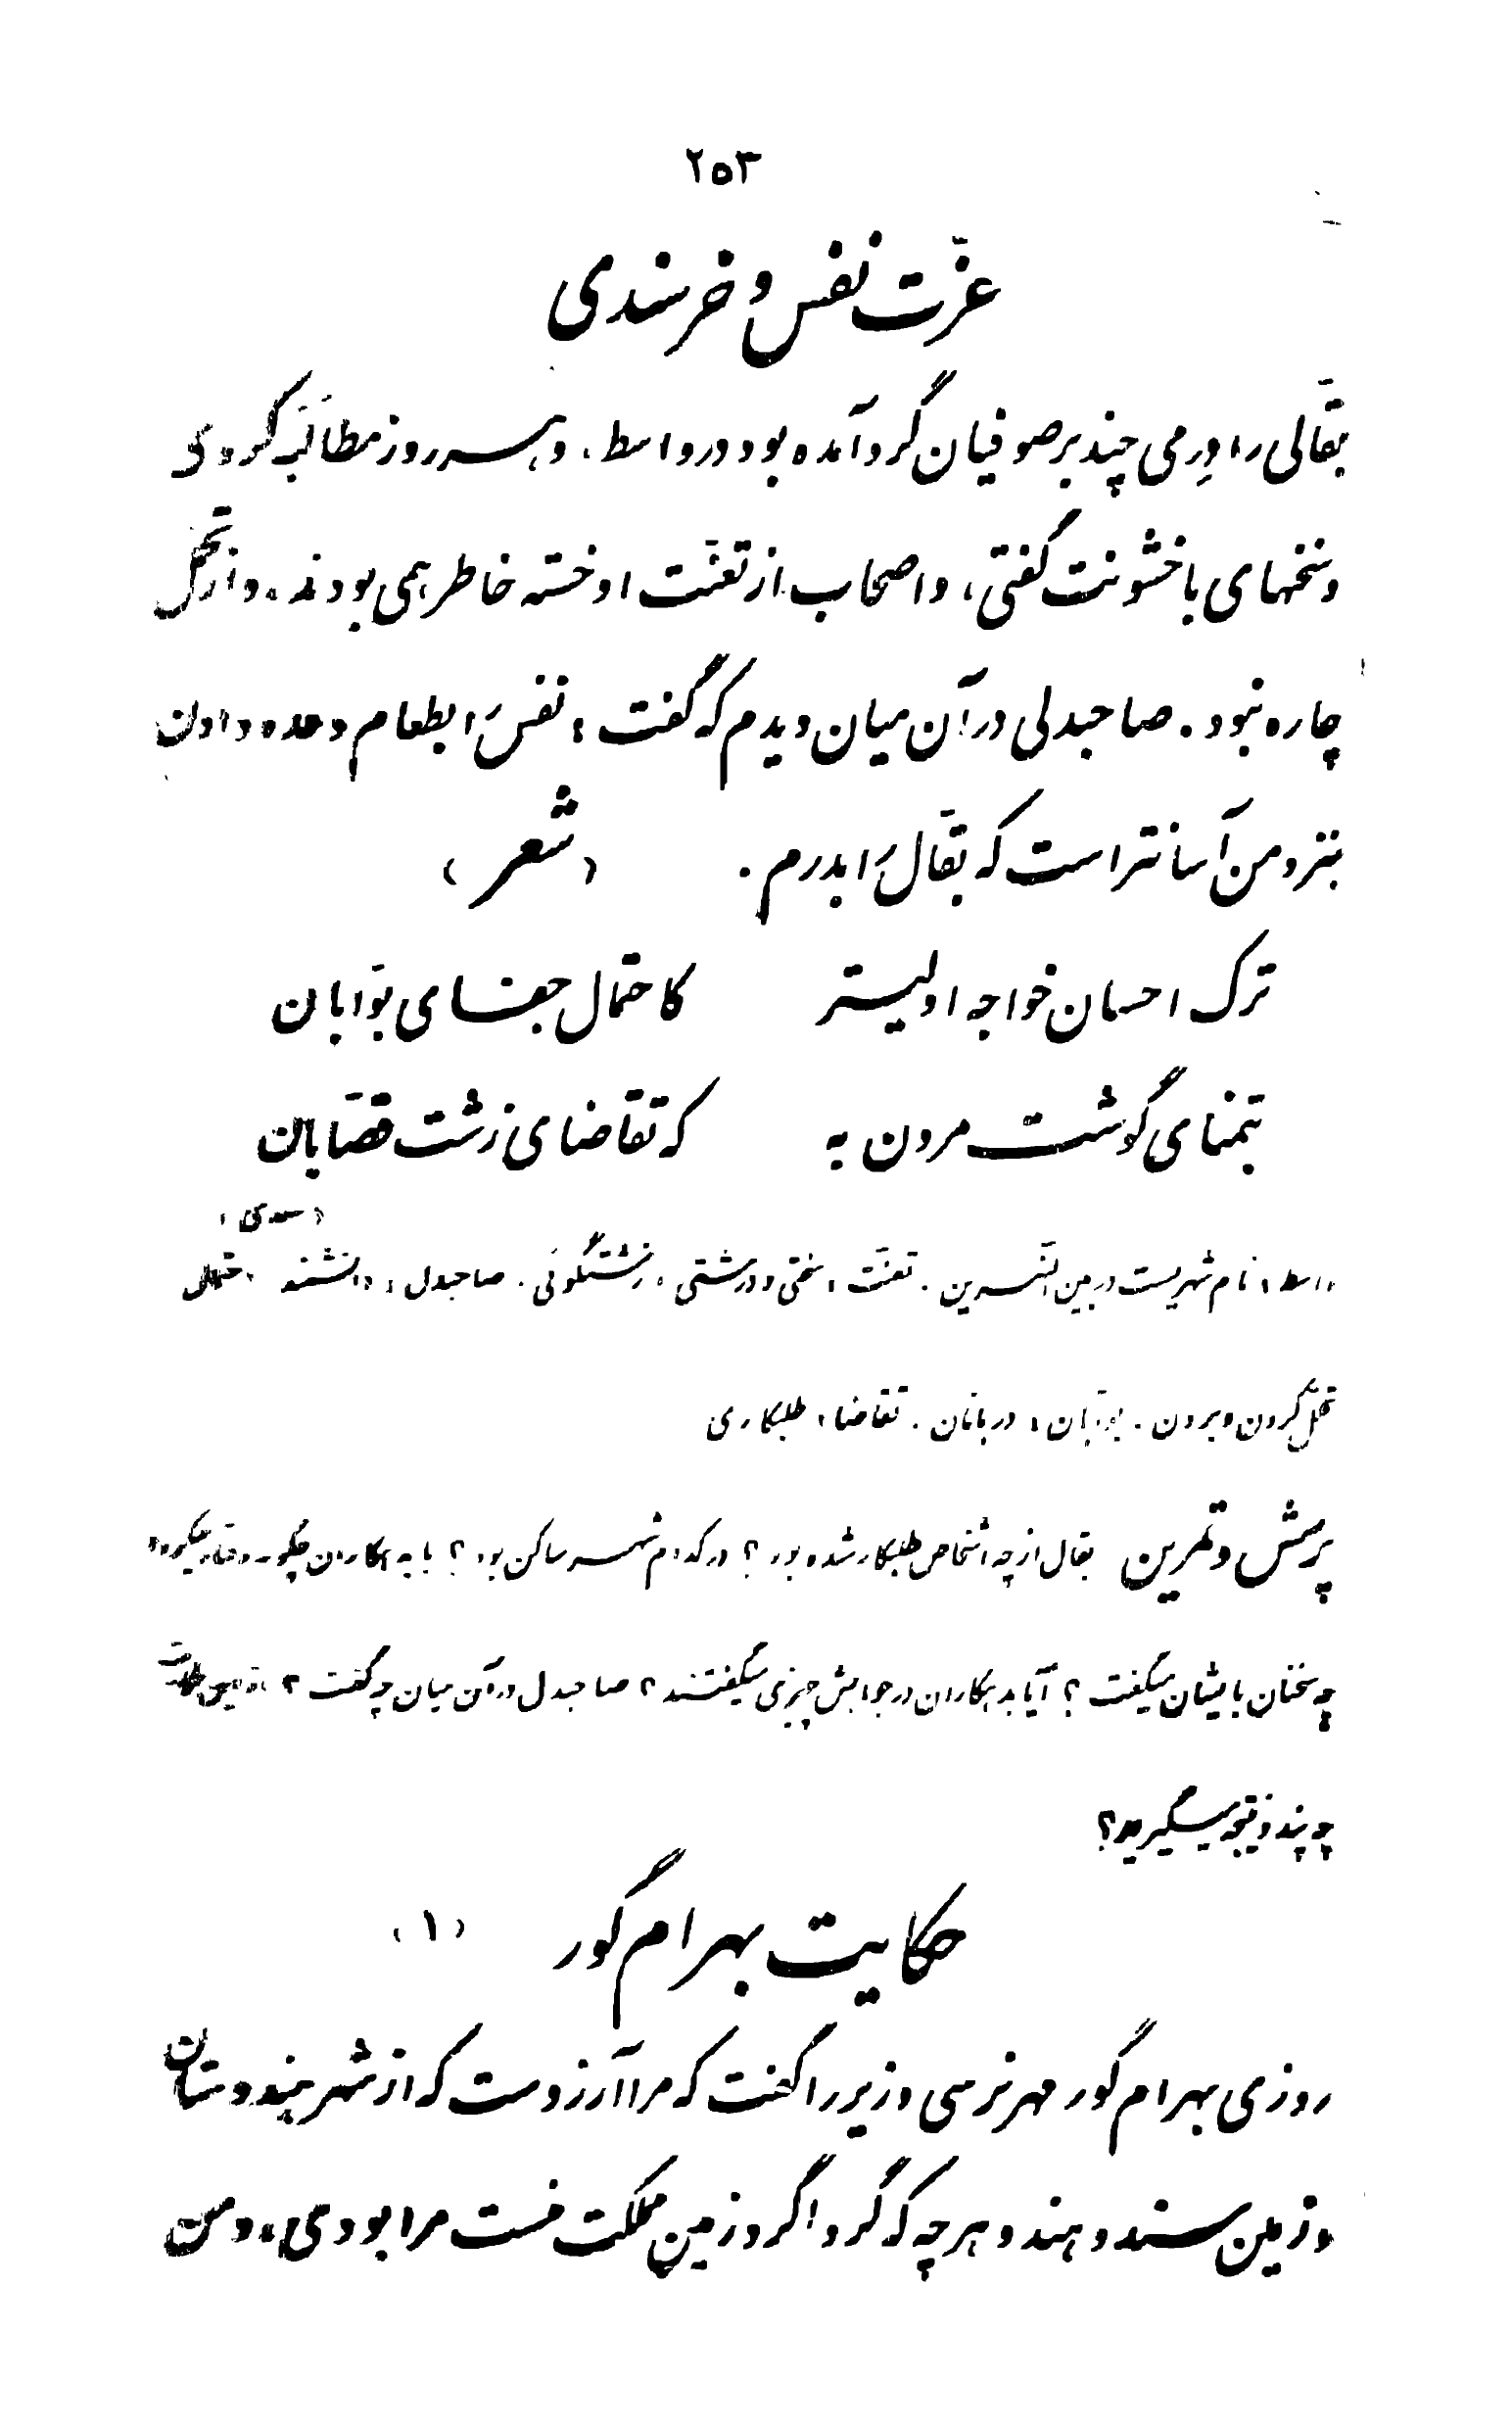 ۲۵۳
عزّت نفس و خرسندی
بقّالی را دِرمی چند بر صوفیان گرد آمده بود در واسط، و هر روز مطالَبَه کردی
و سخنهای با خشونت گفتی، و اصحاب از تعنّت او خسته خاطر همی بودند، و از تحمّل
چاره نبود. صاحبدلی در آن میان دیدم که گفت: نفس را بطعام وعده دادن
بنزد من آسانتر است که بقّال را بدرم. (شعر)
ترک احسان خواجه اولیتر کاحتمال جفای بوّابان
بتمنای گوشت مردن به که تقاضای زشت قصّابان
(سعدی)
واسط: نام شهریست در بین النّهرین. تعنّت: سختی و درشتی، زشتگوئی. صاحبدل: دانشمند، احتمال:
تحمّل کردن و بردن. بوّابان: دربانان. تقاضا: طلبکاری
پرسش و تمرین بقال از چه اشخاص طلبکار شده بود؟ در کدام شهر ساکن بود؟ با بدهکاران چگونه رفتار میکرد؟
چه سخنان بایشان میگفت؟ آیا بدهکاران در جوابش چیزی میگفتند؟ صاحبدل در آن میان چه گفت؟ از این حکایت
چه پند و نتیجه میگیرید؟
حکایت بهرام گور (۱)
روزی بهرام گور مهر نرسی وزیر را گفت که مرا آرزوست که از شهر هندوستان
و زمین سند و هند و هر چه که گرداگرد زمین مملکت منست مرا بودی، و من